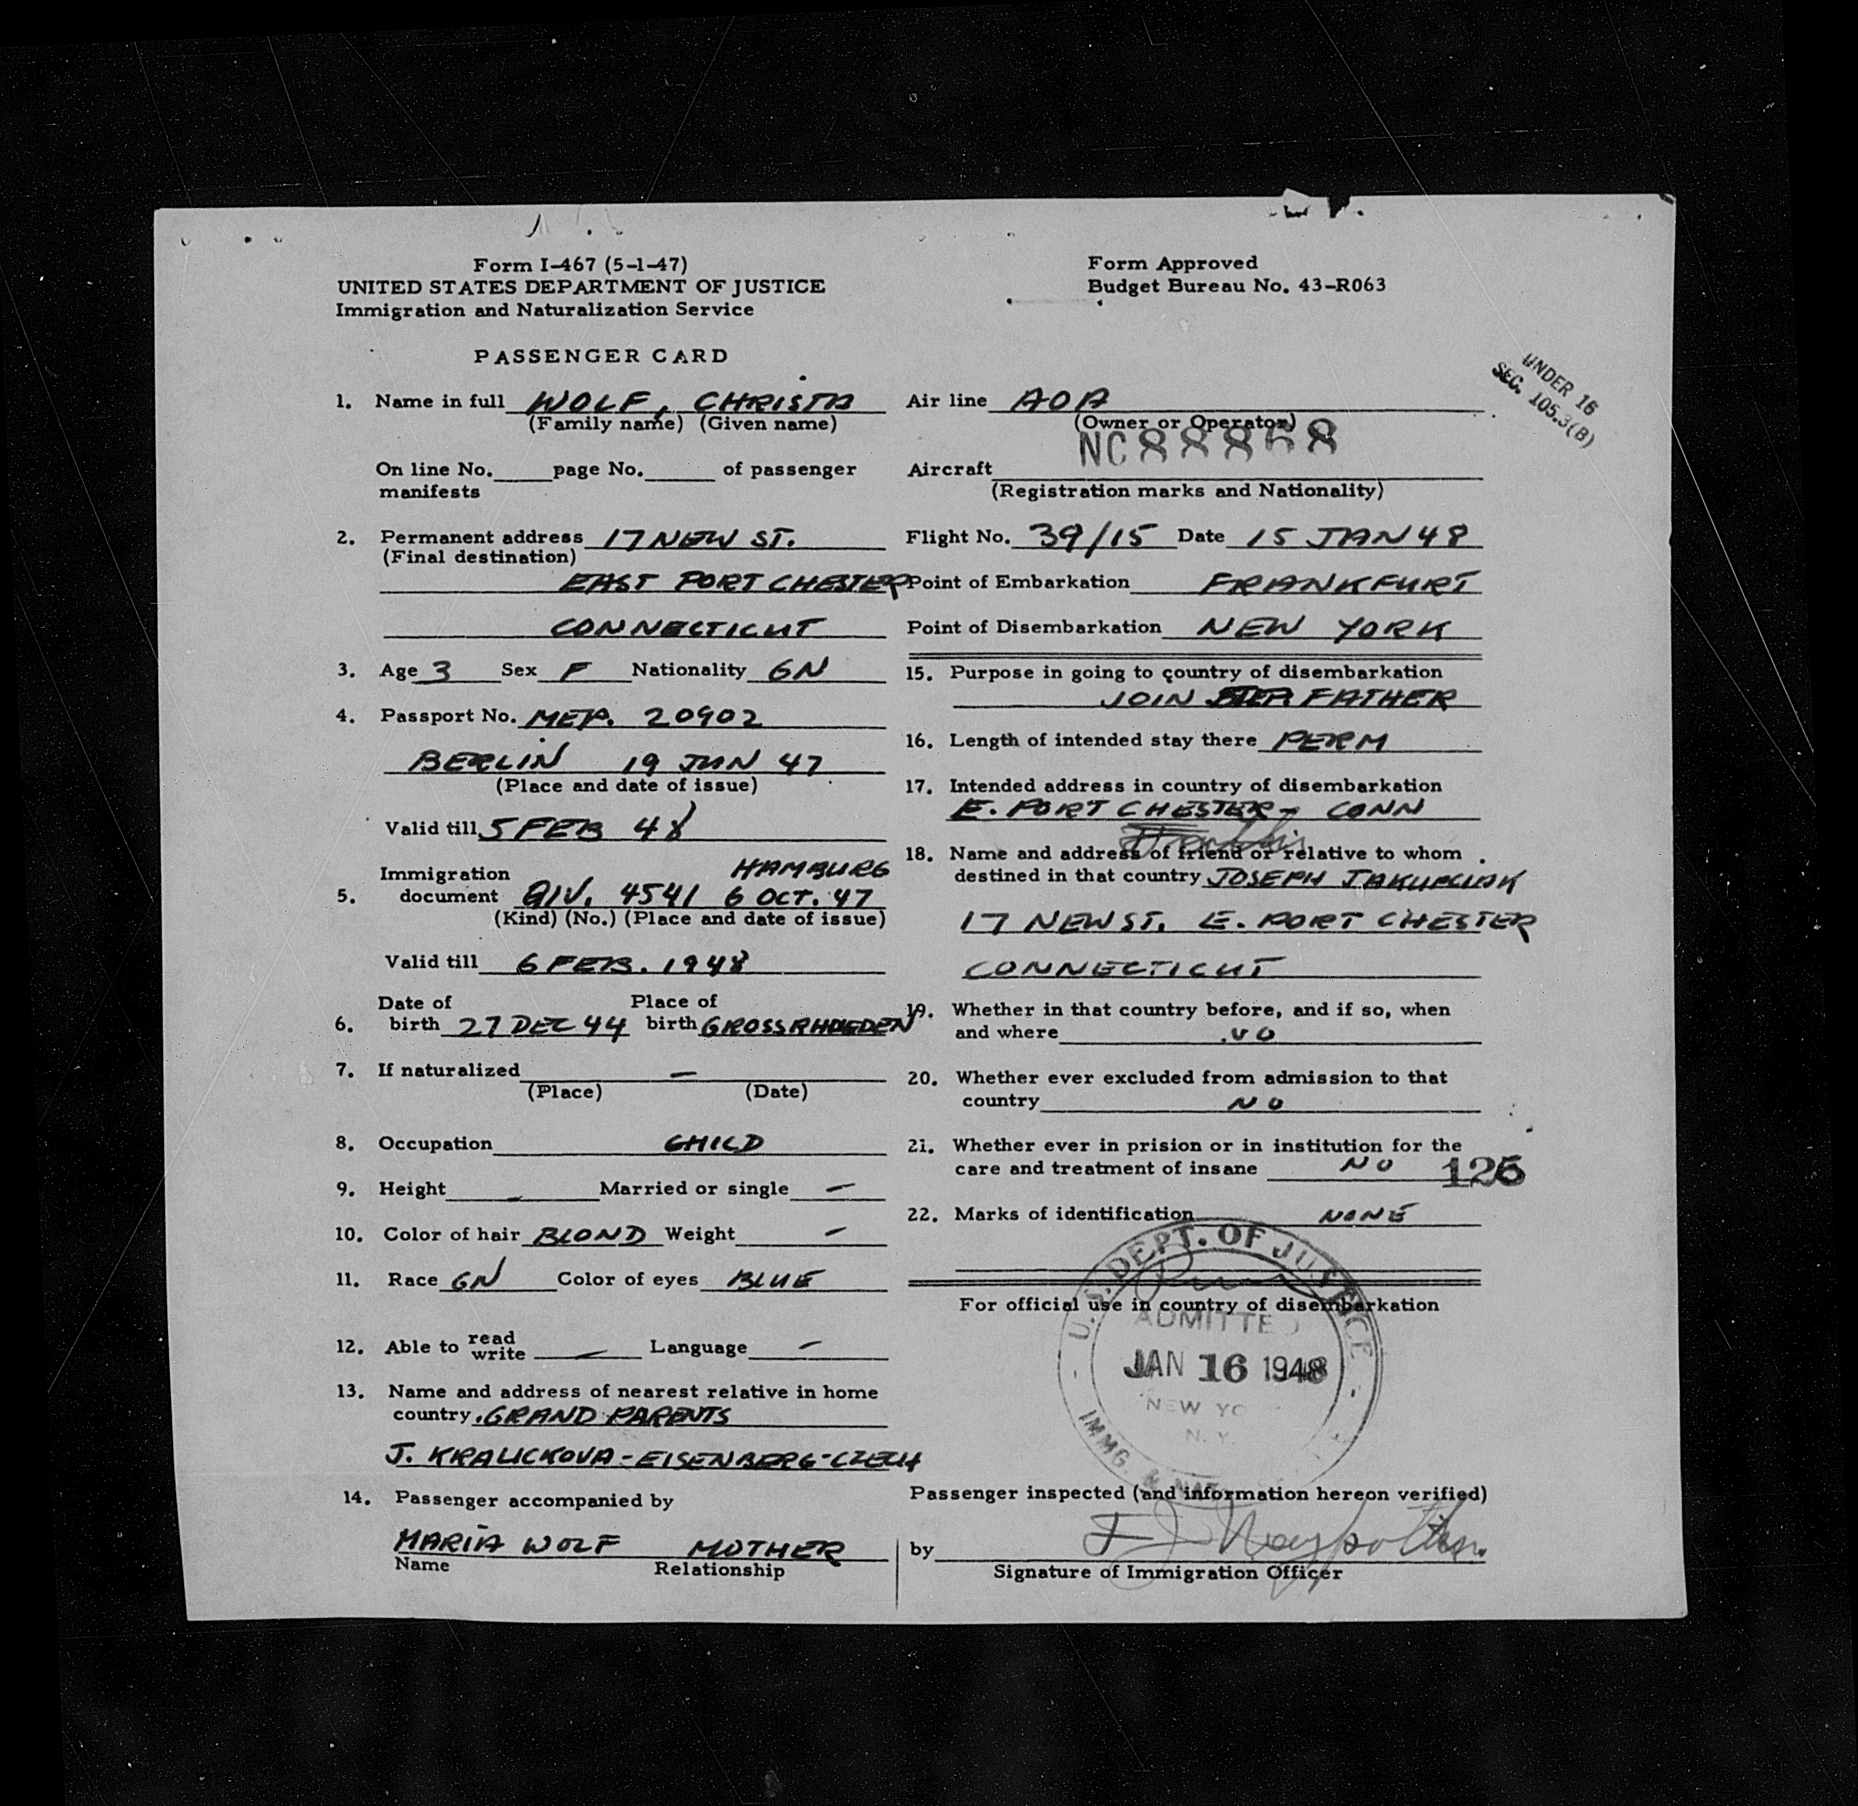 Form I-467 (5-1-47)
UNITED STATES DEPARTMENT OF JUSTICE
Immigration and Naturalization Service
PASSENGER CARD
Form Approved
Budget Bureau No. 43-R063
UNDER 16
SEC. 105.3(B)
1. Name in full WOLF, CHRISTA
(Family name) (Given name)
On line No. page No. of passenger
manifests
2. Permanent address 17 NEW ST.
(Final destination)
EAST PORT CHESTER
CONNECTICUT
3. Age 3 Sex F Nationality GN
4. Passport No. MEP. 20902
BERLIN 19 JUN 47
(Place and date of issue)
Valid till 5 FEB 48
Immigration HAMBURG
5. document QIV. 4541 6 OCT. 47
(Kind) (No.) (Place and date of issue)
Valid till 6 FEB. 1948
Date of Place of
6. birth 27 DEC 44 birth
7. If naturalized —
(Place) (Date)
8. Occupation CHILD
9. Height - Married or single —
10. Color of hair BLOND Weight —
11. Race GN Color of eyes BLUE
12. Able to read write — Language —
13. Name and address of nearest relative in home
country. GRAND PARENTS
J. KRALICKOVA-EISENBERG-CZECH
14. Passenger accompanied by
MARIA WOLF MOTHER
Name Relationship
Air line AOA
(Owner or Operator)
NC 88868
Aircraft
(Registration marks and Nationality)
Flight No. 39/15 Date 15 JAN 48
Point of Embarkation FRANKFURT
Point of Disembarkation NEW YORK
15. Purpose in going to country of disembarkation
JOIN FATHER
16. Length of intended stay there PERM
17. Intended address in country of disembarkation
E. PORT CHESTER - CONN
18. Name and address of friend or relative to whom
destined in that country JOSEPH JAKUPCIAK
17 NEW ST. E. PORT CHESTER
CONNECTICUT
19. Whether in that country before, and if so, when
and where NO
20. Whether ever excluded from admission to that
country NO
21. Whether ever in prision or in institution for the
care and treatment of insane NO 126
22. Marks of identification NONE
For official use in country of disembarkation
U.S. DEPT. OF JUSTICE
ADMITTED
JAN 16 1948
NEW YO
N.Y.
IMMG. & NAT
Passenger inspected (and information hereon verified)
by
Signature of Immigration Officer